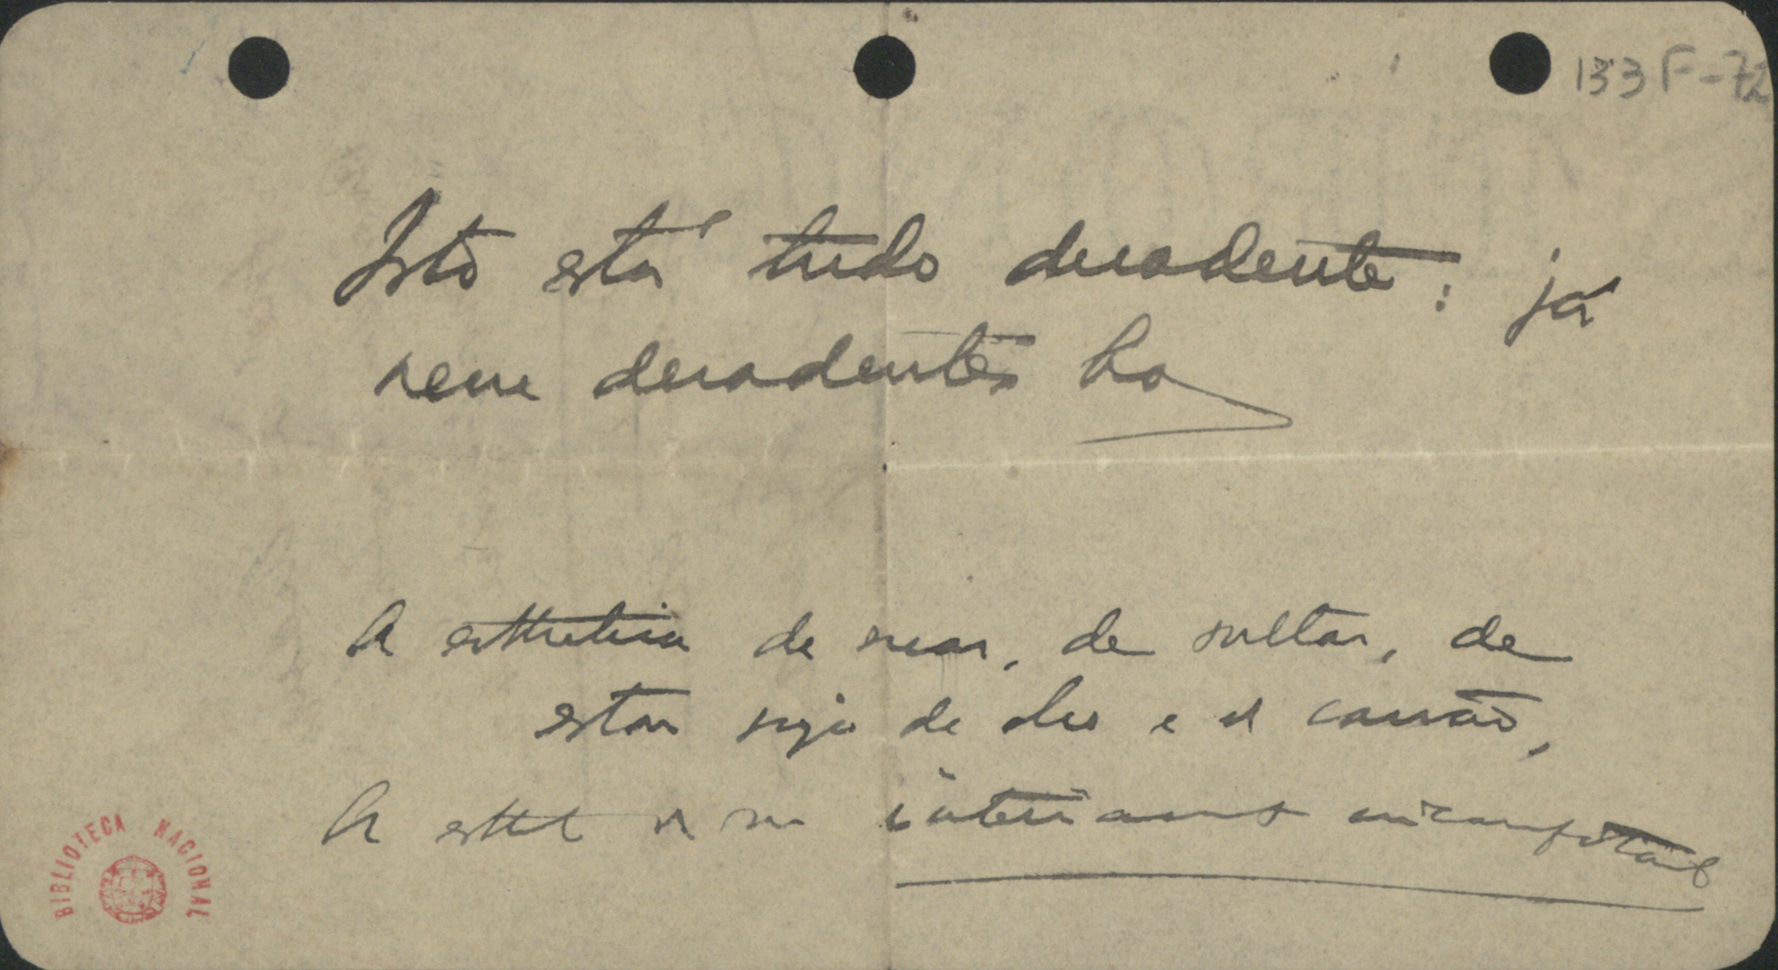 133F-72
Isto está tudo decadente: já
nem decadentes ha
A esthetica de suar, de saltar, de
estar sujo de oleo e de carvão,
A esthet de ser interiamente
BIBLIOTECA NACIONAL